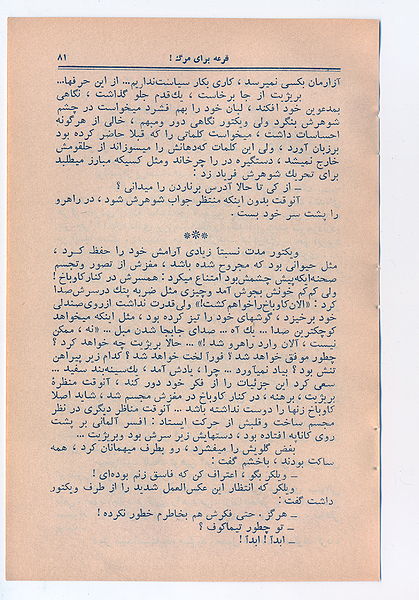 قرعه برای مرگ ! ۸۱
آزارمان بکسی نمیرسد ، کاری بکار سیاست نداریم... از این حرفها...
بریژیت از جا برخاست ، یك‌قدم جلو گذاشت ، نگاهی
بمدعوین خود افکند ، لبان خود را بهم فشرد میخواست در چشم
شوهرش بنگرد ولی ویکتور نگاهی دور ومبهم ، خالی از هرگونه
احساسات داشت ، میخواست کلماتی را که قبلا حاضر کرده بود
برزبان آورد ، ولی این کلمات که‌دهانش را میسوزاند از حلقومش
خارج نمیشد ، دستگیره در را چرخاند ومثل کسیکه مبارز میطلبد
برای تحریك شوهرش فریاد زد :
ــ از کی تا حالا آدرس برناردن را میدانی ؟
آنوقت بدون اینکه منتظر جواب شوهرش شود ، در راهرو
را پشت سر خود بست .
***
ویکتور مدت نسبتاً زیادی آرامش خود را حفظ کرد ،
مثل حیوانی بود که مجروح شده باشد ، مغزش از تصور وتجسم
صحنه‌ایکه‌پیش چشمش‌بود امتناع میکرد : همسرش در کنارکاوباخ !
ولی کم‌کم خونش بجوش آمد وچیزی مثل ضربه بتك درسرش‌صدا
کرد : «الان‌کاوباخ‌راخواهم‌کشت!» ولی‌قدرت نداشت ازروی‌صندلی
خود برخیزد ، گوشهای خود را تیز کرده بود ، مثل اینکه میخواهد
کوچکترین صدا ... یك آه ... صدای جابجا شدن مبل ... «نه ، ممکن
نیست ، آلان وارد راهرو شد !» ... حالا بریژیت چه خواهد کرد ؟
چطور موفق خواهد شد ؟ فوراً لخت خواهد شد ؟ کدام زیر پیراهن
تنش بود ؟ بیاد نمیآورد ... چرا ، یادش آمد ، یك‌سینه‌بند سفید ...
سعی کرد این جزئیات را از فکر خود دور کند ، آنوقت منظرهٔ
بریژیت ، برهنه ، در کنار کاوباخ در مغزش مجسم شد ، شاید اصلا
کاوباخ زنها را دوست نداشته باشد ... آنوقت مناظر دیگری در نظر
مجسم ساخت وقلبش از حرکت ایستاد : افسر آلمانی بر پشت
روی کاناپه افتاده بود ، دستهایش زیر سرش بود وبریژیت ...
بغض گلویش را میفشرد ، رو بطرف میهمانان کرد ، همه
ساکت بودند ، باخشم گفت :
ــ ویلکر بگو ! اعتراف کن که فاسق زنم بوده‌ای !
ویلکر که انتظار این عکس‌العمل شدید را از طرف ویکتور
داشت گفت :
ــ هرگز . حتی فکرش هم بخاطرم خطور نکرده !
ــ تو چطور تیماکوف ؟
ــ ابدآ ! ابدآ !